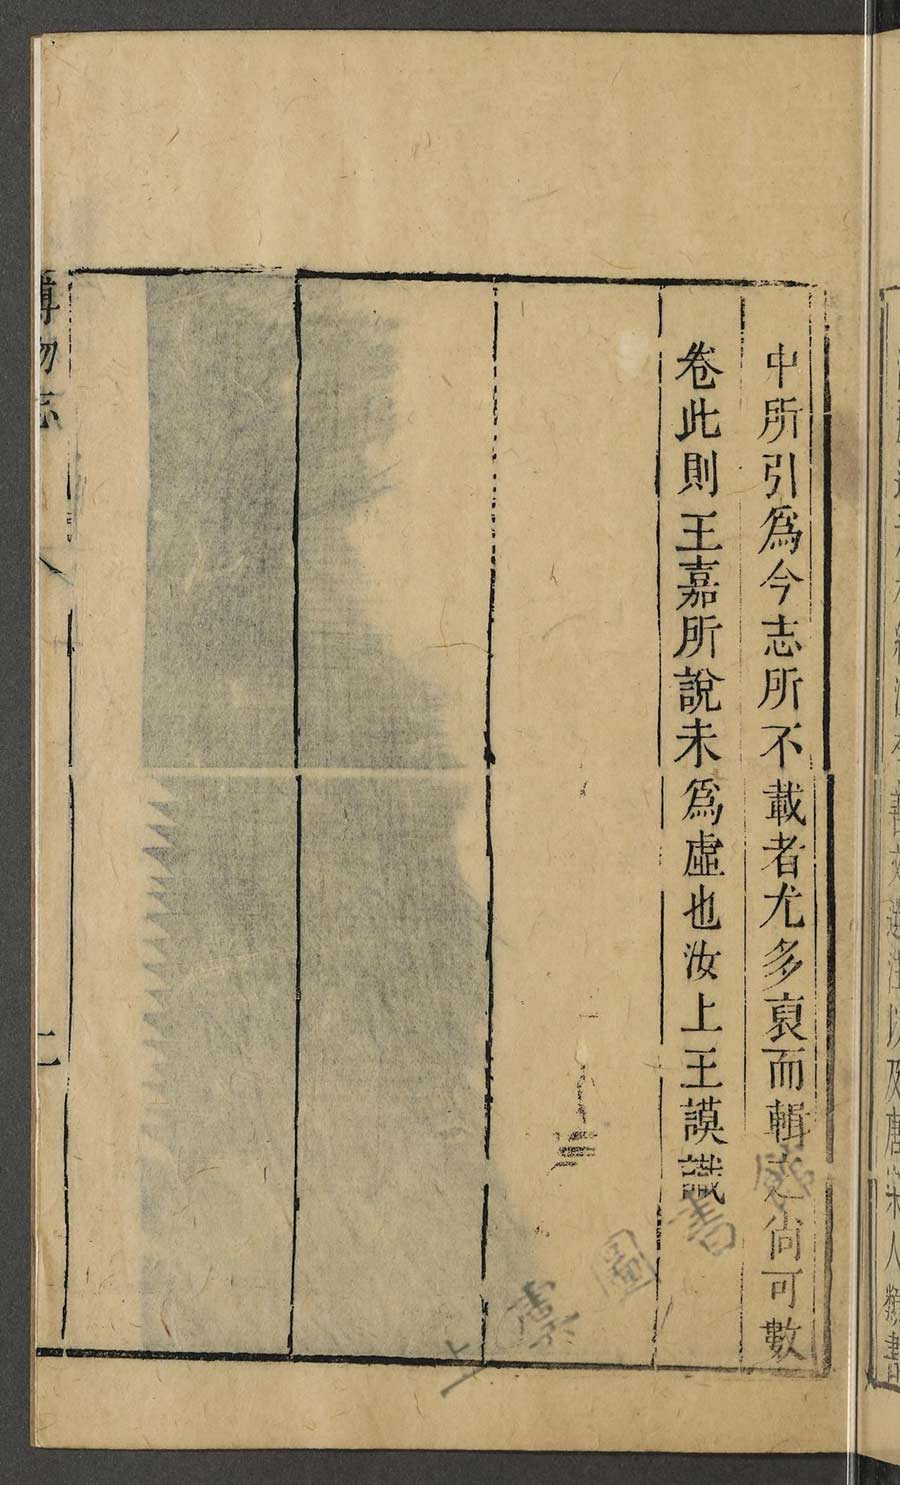 中所引爲今志所不載者尤多裒而輯之尙可數
卷此則王嘉所說未爲虛也汝上王謨識
博物志
二
上虞圖書館